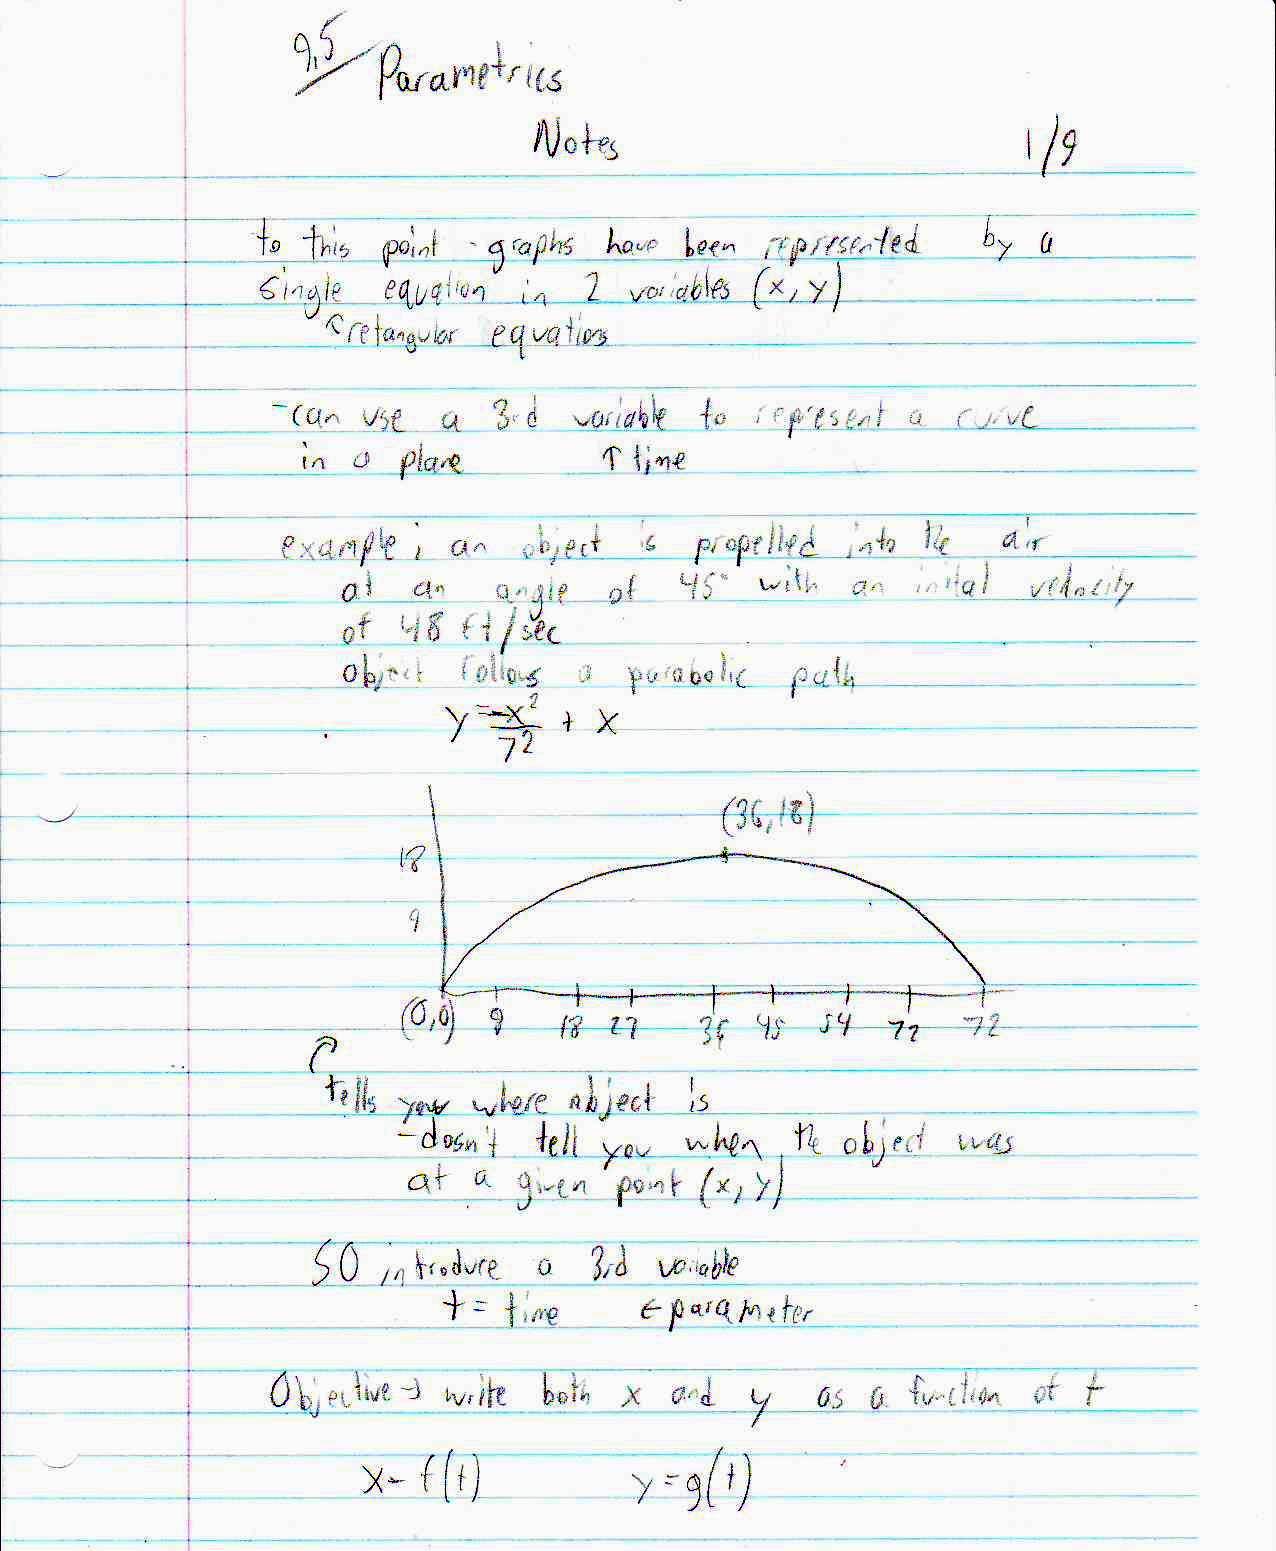 9.5
Parametrics
Notes
1/9
to this point - graphs have been represented by a
single equation in 2 variables (x, y)
↑ retangular equations
- can use a 3rd variable to represent a curve
in a plane ↑ time
example; an object is propelled into the air
at an angle of 45° with an inital velocity
of 48 ft/sec
object follows a parabolic path
y = -x²/72 + x
(36, 18)
18
9
(0,0) 9 18 27 36 45 54 72 72
tells you where object is
- dosn't tell you when the object was
at a given point (x, y)
SO introduce a 3rd variable
t = time ← parameter
Objective → write both x and y as a function of t
x = f(t) y = g(t)